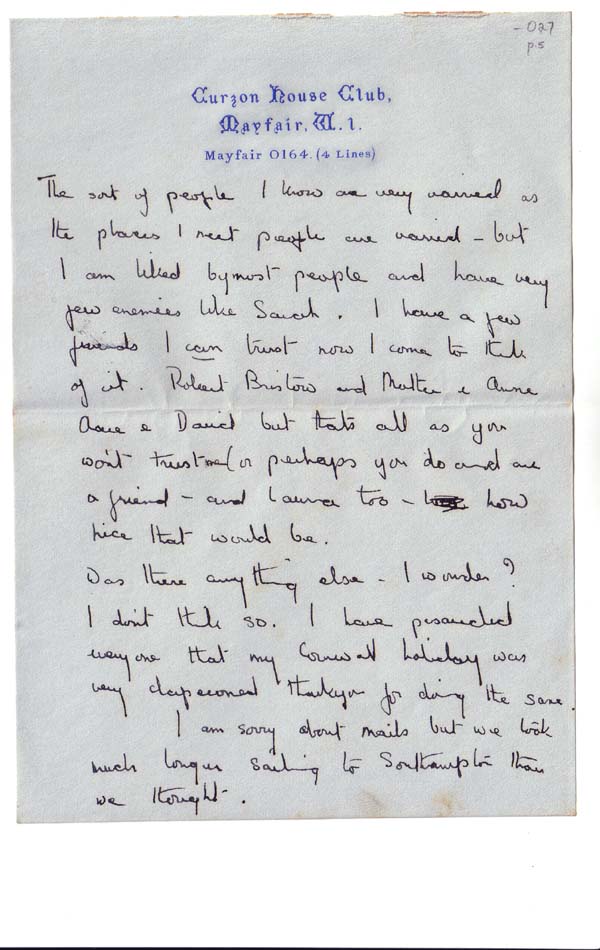 -027
p.5
Curzon House Club,
Mayfair, W.1.
Mayfair 0164. (4 Lines)
The sort of people I know are very varried as
the places I meet people are varried - but
I am liked by most people and have very
few enemies like Sarah. I have a few
friends I can trust now I come to think
of it. Robert Bristow and Mutter & Anne
& David but thats all as you
won't trust me (or perhaps you do and are
a friend - and Laura too - how
nice that would be.
Was there anything else - I wonder?
I don't think so. I have pesauded
everyone that my Cornwall holiday was
very chaperoned thankyou for doing the same.
I am sorry about mails but we took
much longer sailing to Southampton than
we thought.